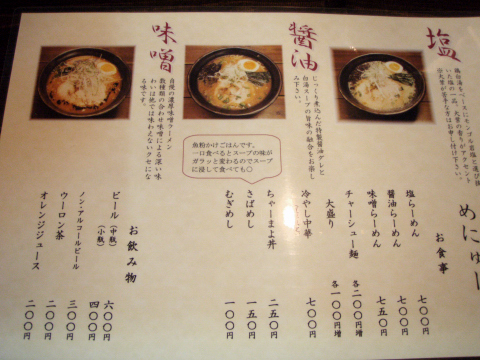 めにゅー
お食事
塩らーめん 七〇〇円
醤油らーめん 七〇〇円
味噌らーめん 七五〇円
チャーシュー麺 各二〇〇円増
大盛り 各一〇〇円増
冷やし中華 七〇〇円
ちゃーまよ丼 二五〇円
さばめし 一五〇円
むぎめし 一〇〇円
お飲み物
ビール (中瓶) 六〇〇円
(小瓶) 四〇〇円
ノン・アルコールビール 三〇〇円
ウーロン茶 二〇〇円
オレンジジュース 二〇〇円
塩
醤油
じっくり煮込んだ特製醤油ダレと
白湯スープの旨味の融合をお楽し
み下さい。
味噌
自慢の濃厚味噌ラーメン
数種類の合わせ味噌による深い味
わいは他では味わえないクセにな
る味です。
魚粉かけごはんです。
一口食べるとスープの味が
ガラッと変わるのでスープ
に浸して食べても〇